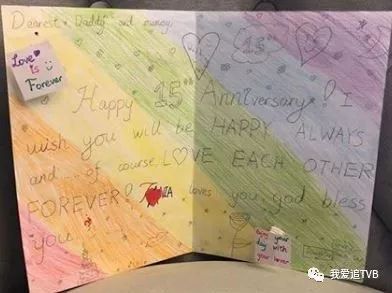 Dearest Daddy and mummy
15
Love
is
Forever
Happy 15 Anniversary! I
wish you will be HAPPY ALWAYS
and... of course, LOVE EACH OTHER
FOREVER! loves you, god bless
you!
Enjoy your
day with
your lover
我爱追TVB